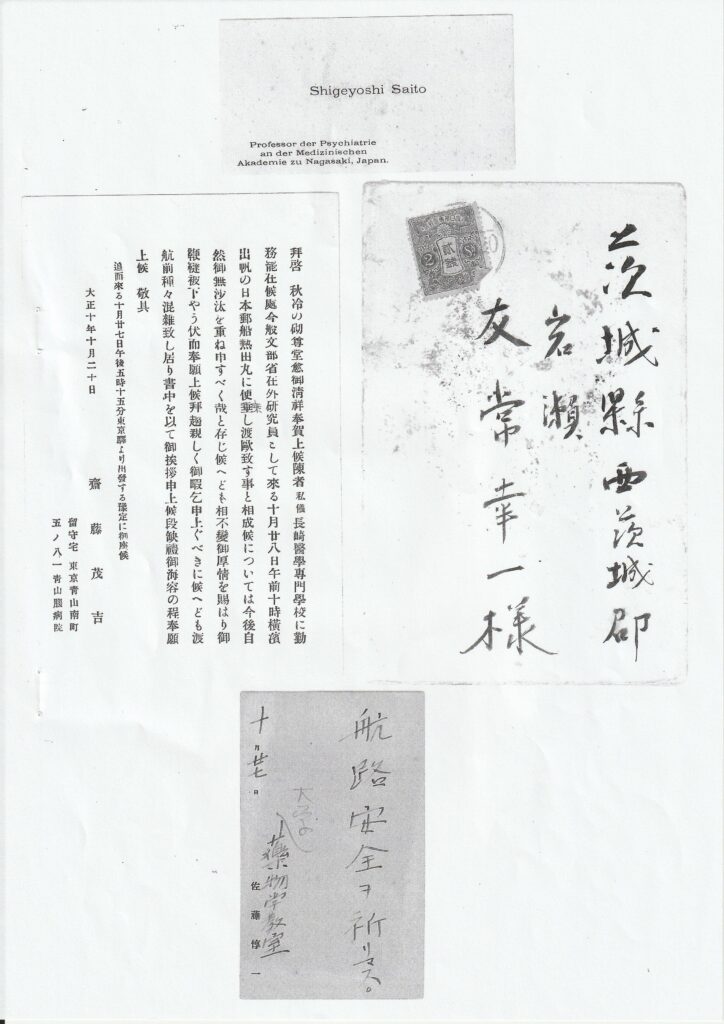 Shigeyoshi Saito
Professor der Psychiatrie
an der Medizinischen
Akademie zu Nagasaki, Japan.
茨城縣西茨城郡
岩瀬
友常幸一様
2
拜啓 秋冷の砌尊堂愈御淸祥奉賀上候陳者私儀長崎醫學專門學校に勤
務罷在候處今般文部省在外硏究員として來る十月廿八日午前十時橫濱
出帆の日本郵船熱田丸に便乘し渡歐致す事と相成候については今後自
然御無沙汰を重ね申すべく哉と存じ候へども相不變御厚情を賜はり御
鞭韃被下やう伏而奉願上候拜趨親しく御暇乞申上ぐべきに候へども渡
航前種々混雜致し居り書中を以て御挨拶申上候段缺禮御海容の程奉願
上候 敬具
追而來る十月廿七日午後五時十五分東京驛より出發する豫定に御座候
大正十年十月二十日
齋藤茂吉
留守宅 東京靑山南町
五ノ八一靑山腦病院
航路安全ヲ祈リマス。
大学の
藥物学教室
佐藤惇一
十月廿七日